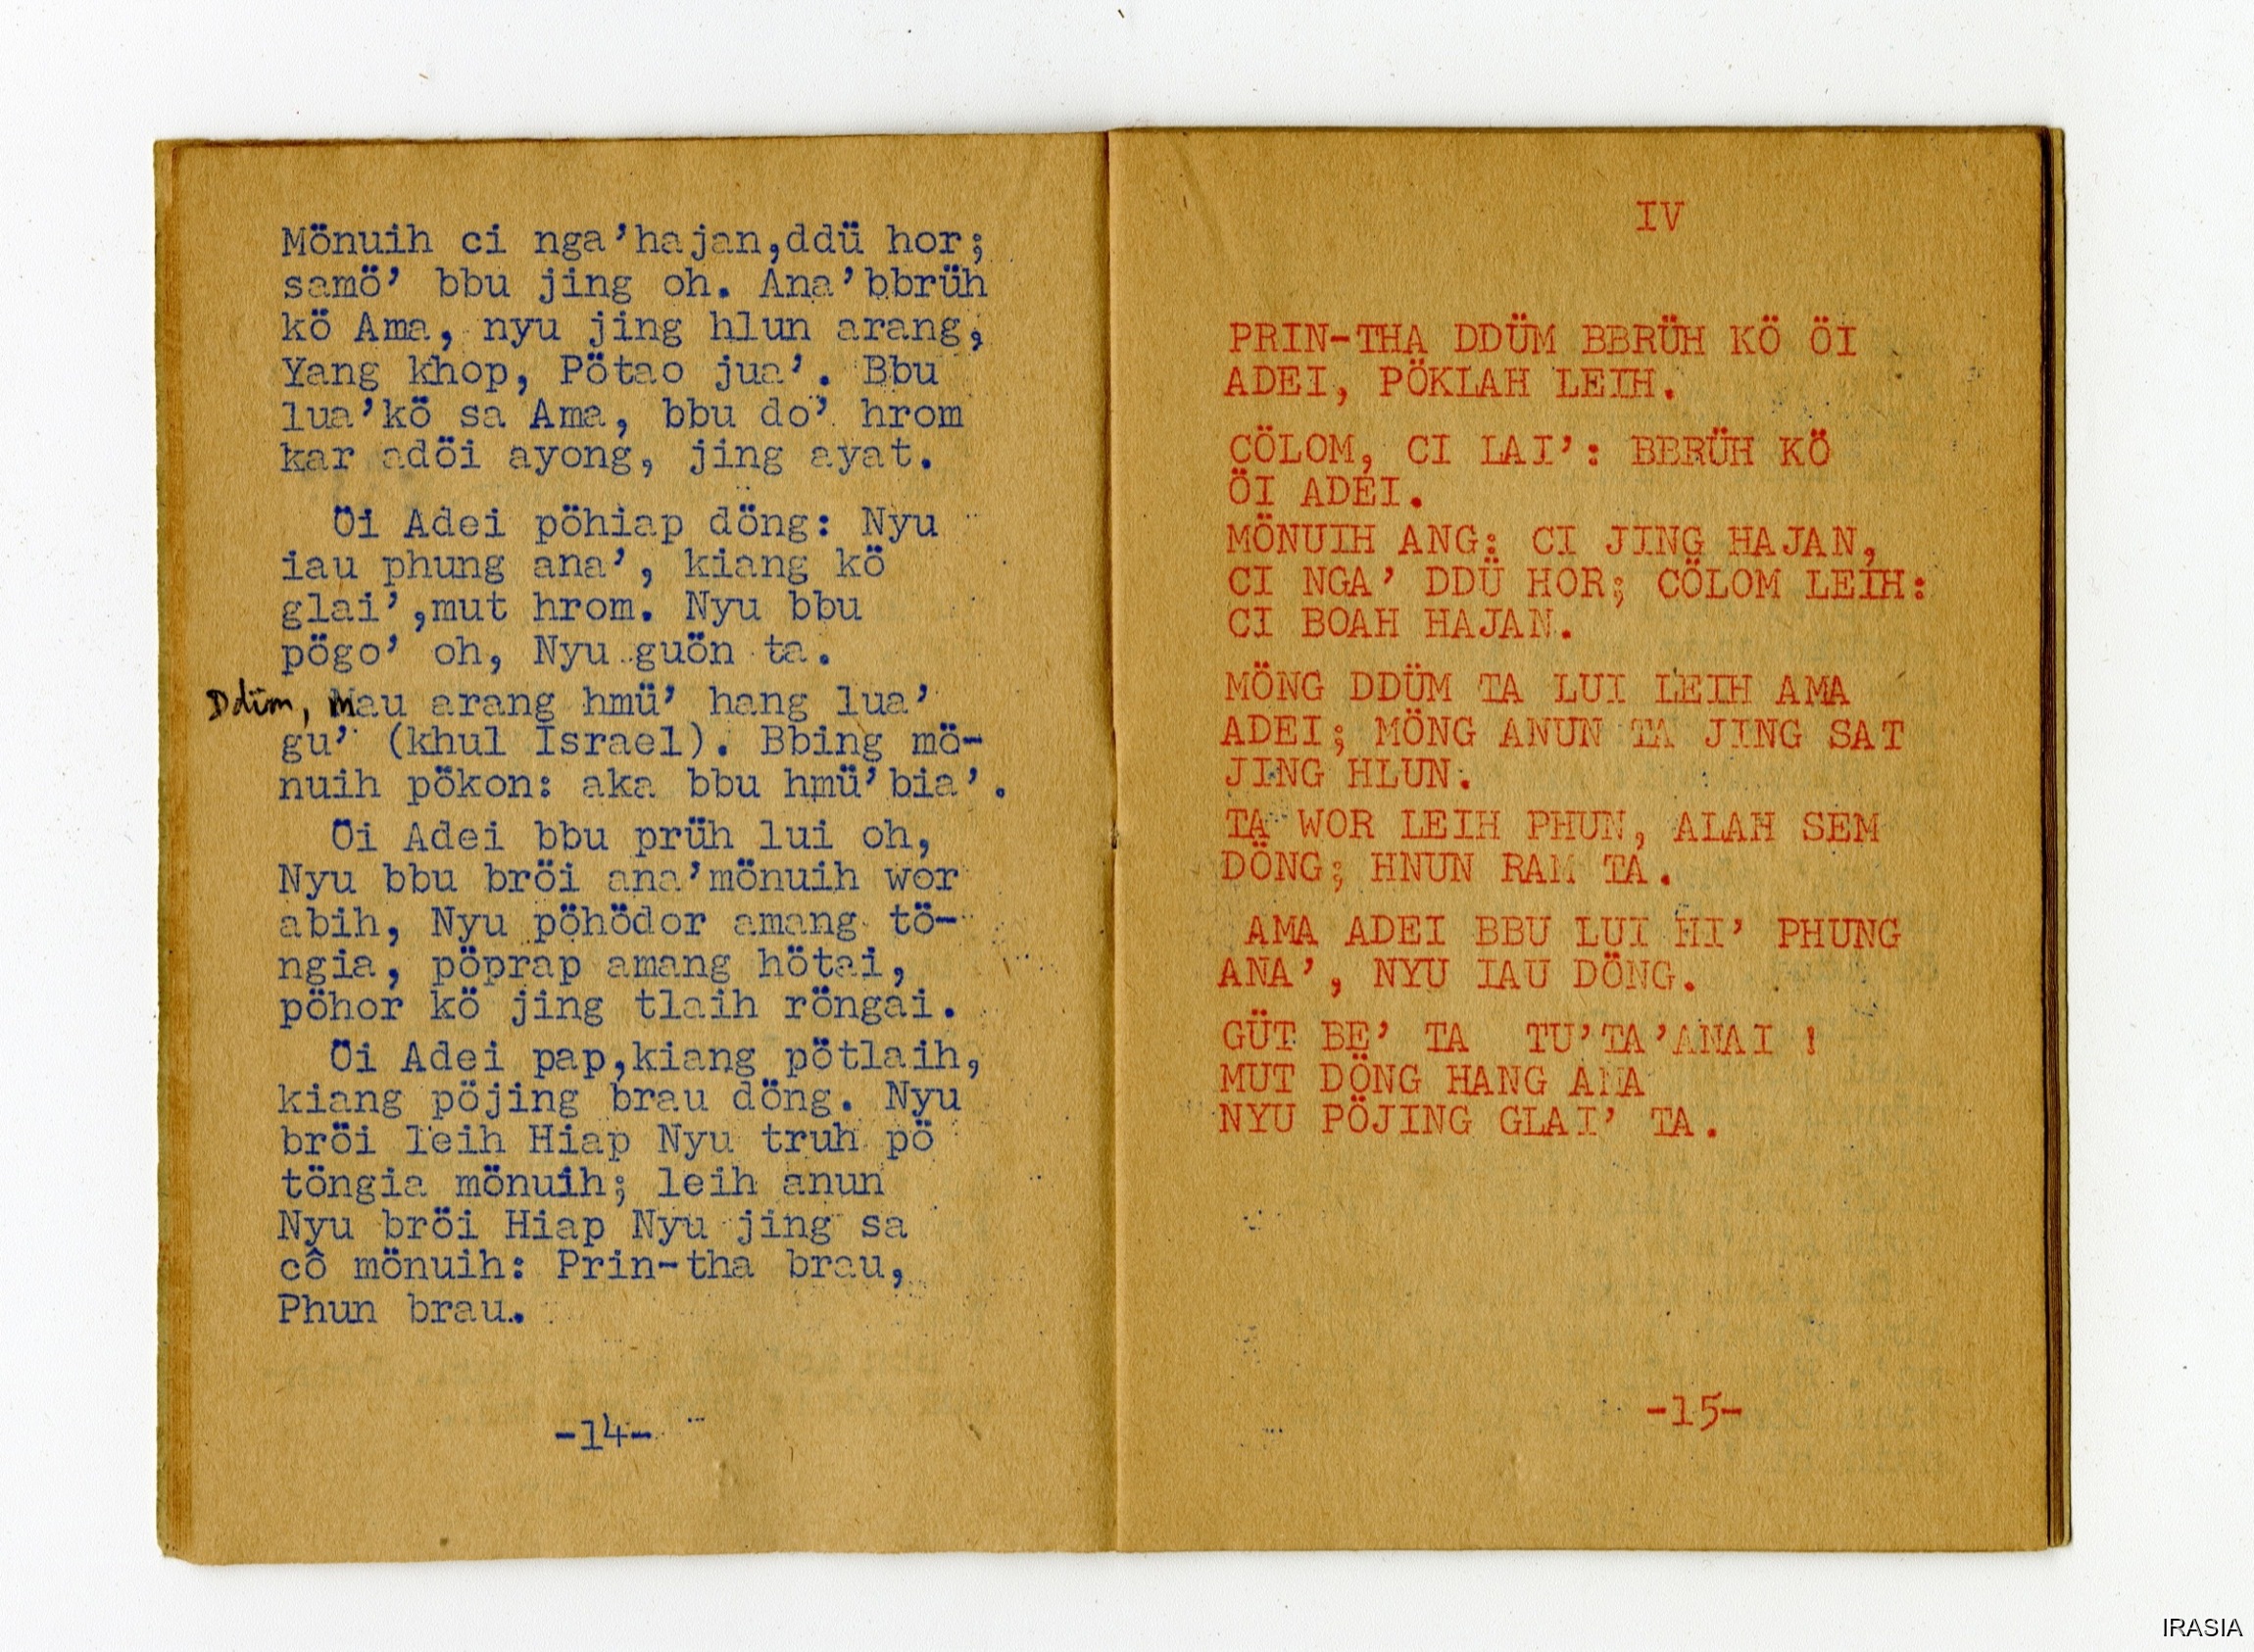 Mönuih ci nga’hajan,ddü hor;
samö’ bbu jing oh. Ana’bbrüh
kö Ama, nyu jing hlun arang,
Yang khop, Pötao jua’. Bbu
lua’kö sa Ama, bbu do’ hrom
kar adöi ayong, jing ayat.
Öi Adei pöhiap döng: Nyu
iau phung ana’, kiang kö
glai’,mut hrom. Nyu bbu
pögo’ oh, Nyu guön ta.
Ddüm, Mau arang hmü’ hang lua’
gu’ (khul Israel). Bbing mö-
nuih pökon: aka bbu hmü’bia’.
Öi Adei bbu prüh lui oh,
Nyu bbu bröi ana’mönuih wor
abih, Nyu pöhödor amang tö-
ngia, pöprap amang hötai,
pöhor kö jing tlaih röngai.
Öi Adei pap,kiang pötlaih,
kiang pöjing brau döng. Nyu
bröi leih Hiap Nyu truh pö
töngia mönuih; leih anun
Nyu bröi Hiap Nyu jing sa
cô mönuih: Prin-tha brau,
Phun brau.
-14-
IV
PRIN-THA DDÜM BBRÜH KÖ ÖI
ADEI, PÖKLAH LEIH.
CÖLOM, CI LAI’: BBRÜH KÖ
ÖI ADEI.
MÖNUIH ANG: CI JING HAJAN,
CI NGA’ DDÜ HOR; CÖLOM LEIH:
CI BOAH HAJAN.
MÖNG DDÜM TA LUI LEIH AMA
ADEI; MÖNG ANUN TA JING SAT
JING HLUN.
TA WOR LEIH PHUN, ALAH SEM
DÖNG; HNUN RAM TA.
AMA ADEI BBU LUI HI’ PHUNG
ANA’, NYU IAU DÖNG.
GÜT BE’ TA TU’TA’ANAI !
MUT DÖNG HANG AMA
NYU PÖJING GLAI’ TA.
-15-
IRASIA